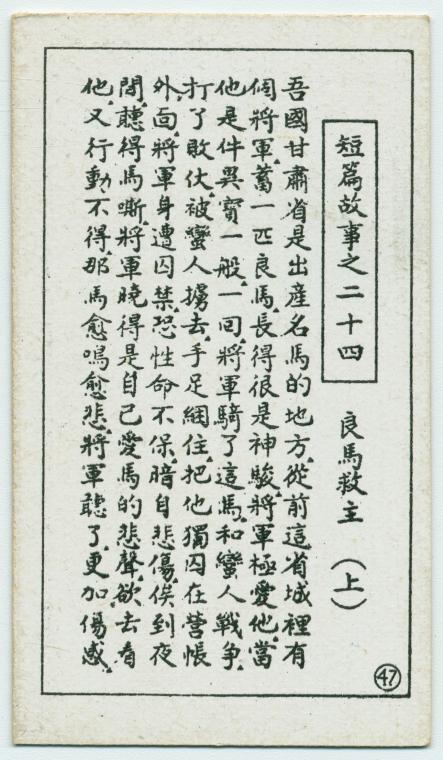 短篇故事之二十四
良馬救主（上）
吾國甘肅省是出產名馬的地方、從前這省城裡有
個將軍、蓄一匹良馬、長得很是神駿、將軍極愛他、當
他是件異寶一般、一回、將軍騎了這馬、和蠻人戰爭、
打了敗仗、被蠻人擄去、手足綑住、把他獨囚在營帳
外面、將軍身遭囚禁、恐性命不保、暗自悲傷、俟到夜
間、聽得馬嘶、將軍曉得是自己愛馬的悲聲、欲去看
他、又行動不得、那馬愈鳴愈悲、將軍聽了、更加傷感、
47